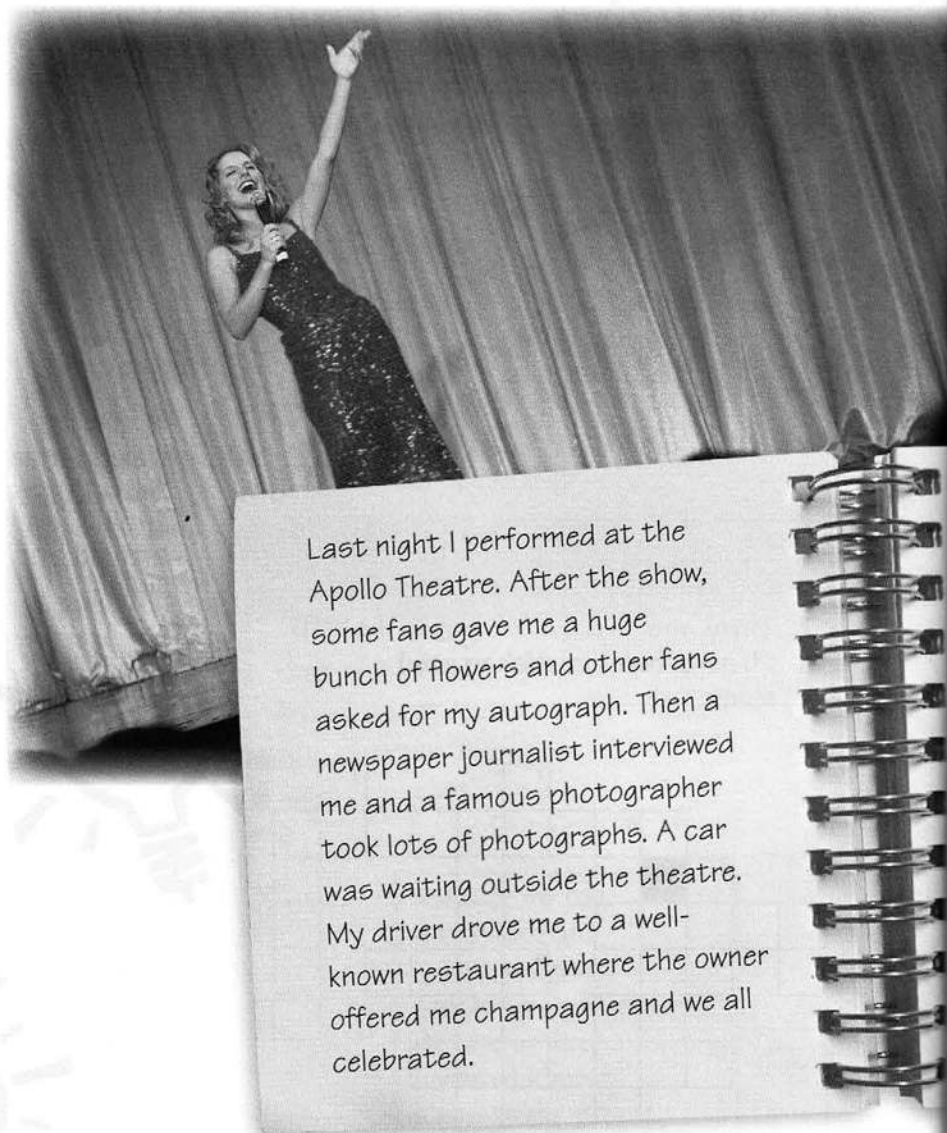 Last night I performed at the
Apollo Theatre. After the show,
some fans gave me a huge
bunch of flowers and other fans
asked for my autograph. Then a
newspaper journalist interviewed
me and a famous photographer
took lots of photographs. A car
was waiting outside the theatre.
My driver drove me to a well-
known restaurant where the owner
offered me champagne and we all
celebrated.